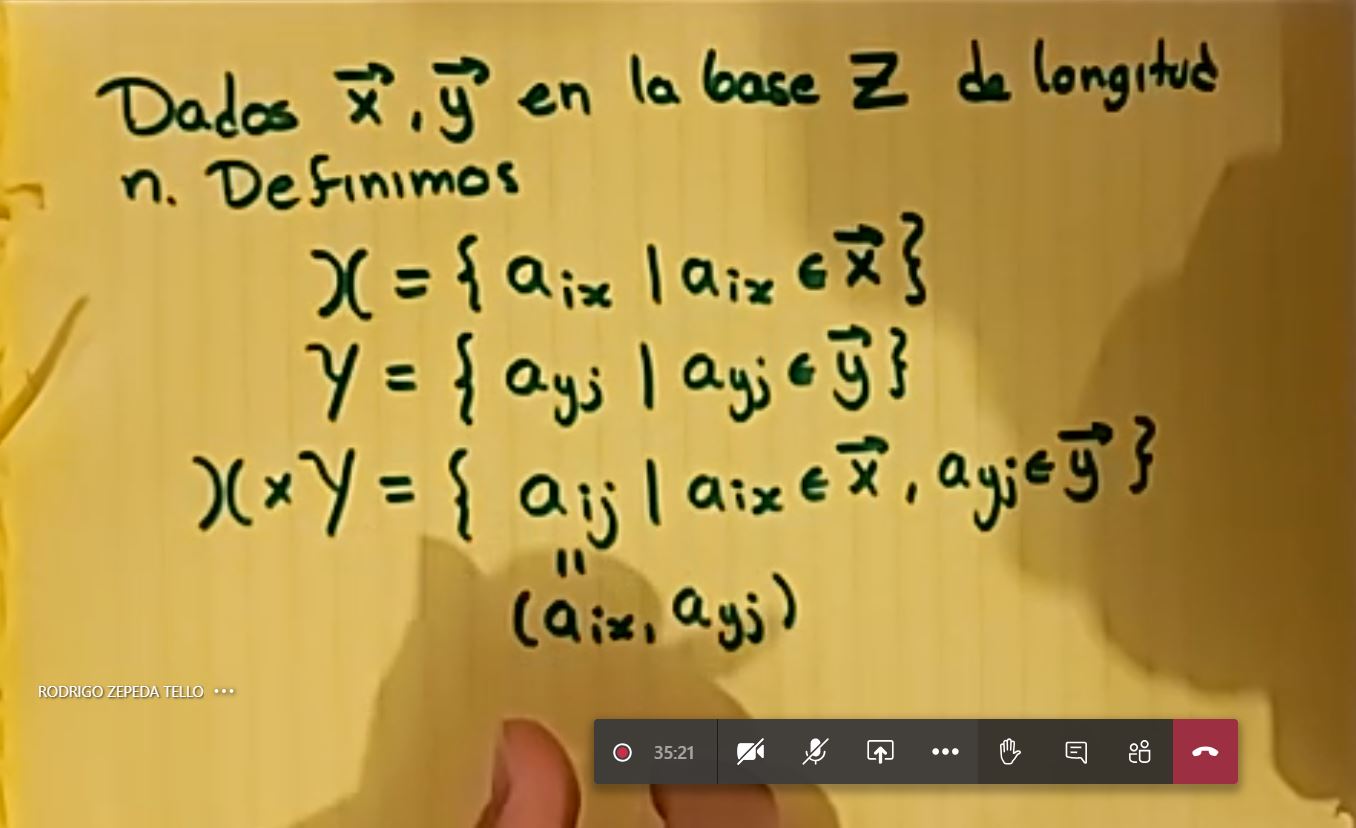 Dados x⃗, y⃗ en la base Z de longitud
n. Definimos
X = { aix | aix ∈ x⃗ }
Y = { ayj | ayj ∈ y⃗ }
X × Y = { aij | aix ∈ x⃗, ayj ∈ y⃗ }
=
(aix, ayj)
RODRIGO ZEPEDA TELLO •••
35:21